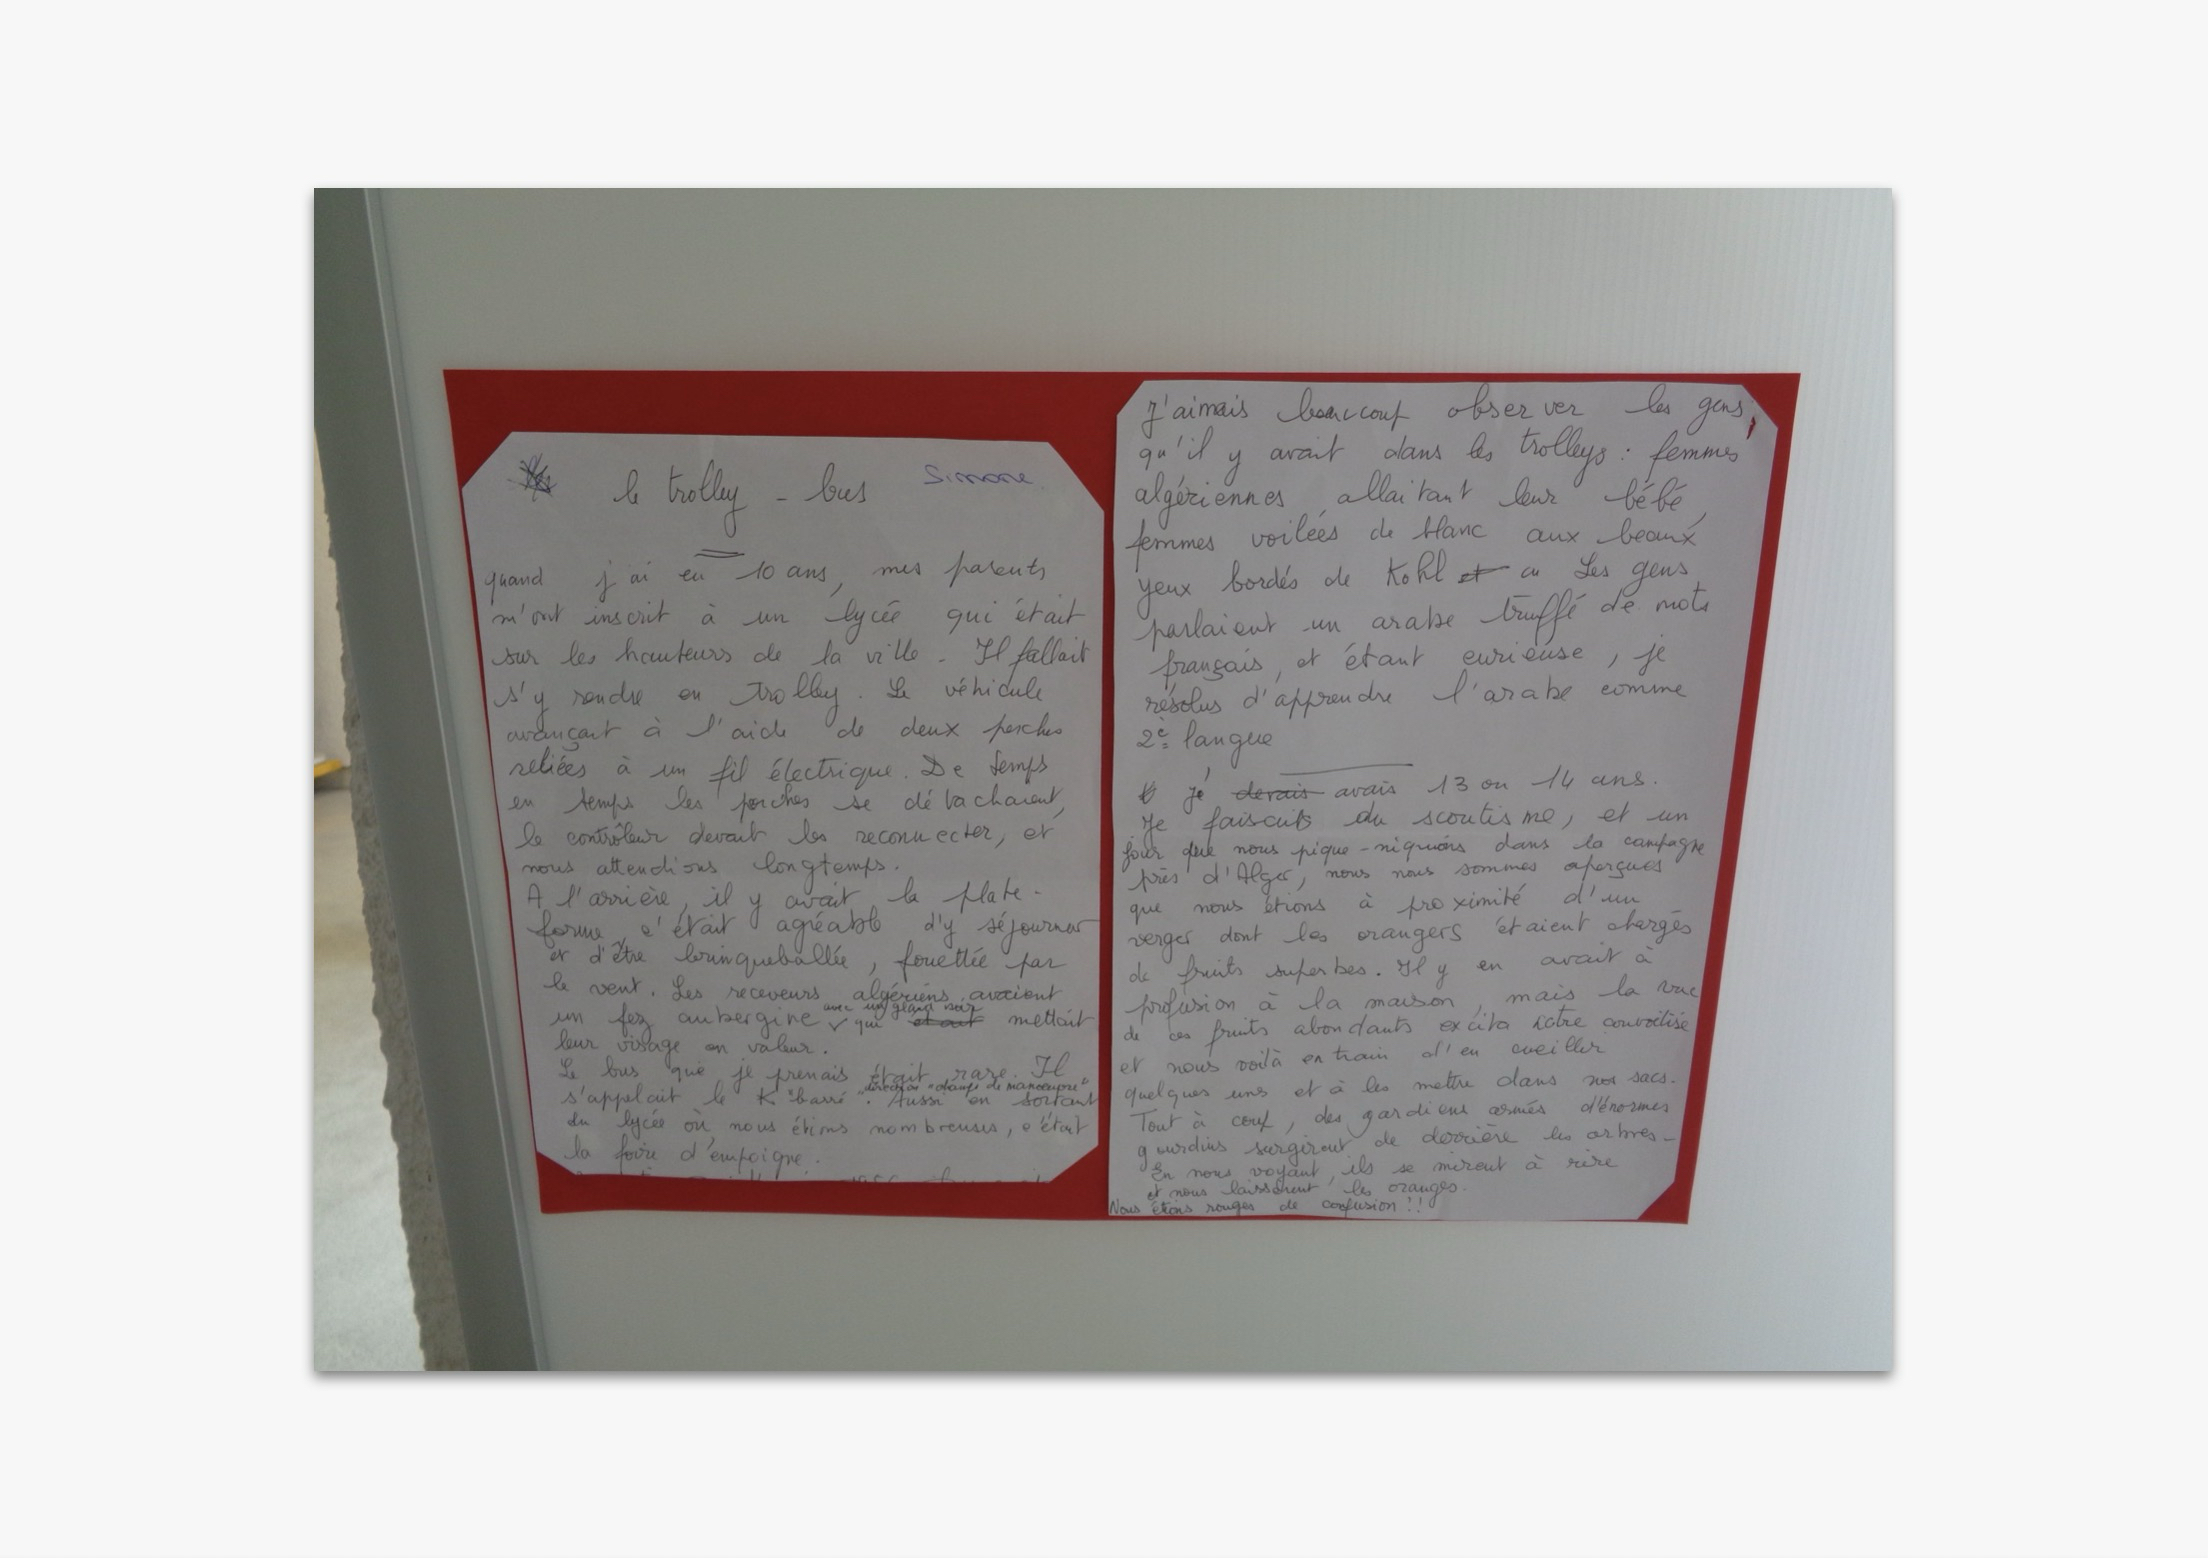 le trolley - bus
Simone
quand j'ai eu 10 ans, mes parents
m'ont inscrit à un lycée qui était
sur les hauteurs de la ville. Il fallait
s'y rendre en trolley. Le véhicule
avançait à l'aide de deux perches
reliées à un fil électrique. De temps
en temps les perches se détachaient,
le contrôleur devait les reconnecter, et
nous attendions longtemps.
A l'arrière, il y avait la plate-
forme, c'était agréable d'y séjourner
et d'être brinqueballée, fouettée par
le vent. Les receveurs algériens avaient
un fez aubergine avec un gland noir qui était mettait
leur visage en valeur.
Le bus que je prenais était rare. Il
s'appelait le K "barré" direction "champ de manoeuvre". Aussi en sortant
du lycée où nous étions nombreuses, c'était
la foire d'empoigne.
J'aimais beaucoup observer les gens,
qu'il y avait dans les trolleys : femmes
algériennes allaitant leur bébé,
femmes voilées de blanc aux beaux
yeux bordés de Kohl et Les gens
parlaient un arabe truffé de mots
français, et étant curieuse, je
résolus d'apprendre l'arabe comme
2è langue
Je devais avais 13 ou 14 ans.
Je faisais du scoutisme, et un
jour que nous pique-niquions dans la campagne
près d'Alger, nous nous sommes aperçues
que nous étions à proximité d'un
verger dont les orangers étaient chargés
de fruits superbes. Il y en avait à
profusion à la maison, mais la vue
de ces fruits abondants excita notre convoitise
et nous voilà en train d'en cueillir
quelques uns et à les mettre dans nos sacs.
Tout à coup, des gardiens armés d'énormes
gourdins surgirent de derrière les arbres-
En nous voyant, ils se mirent à rire
et nous laissèrent les oranges.
Nous étions rouges de confusion !!